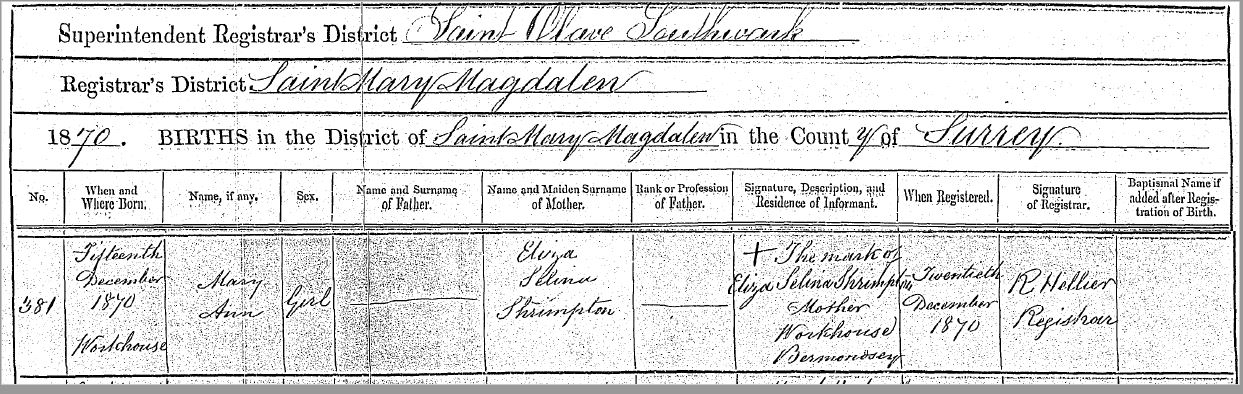 Superintendent Registrar's District Saint Olave Southwark
Registrar's District Saint Mary Magdalen
1870. BIRTHS in the District of Saint Mary Magdalen in the County of Surrey.
No.
When and
Where Born.
Name, if any.
Sex.
Name and Surname
of Father.
Name and Maiden Surname
of Mother.
Rank or Profession
of Father.
Signature, Description, and
Residence of Informant.
When Registered.
Signature
of Registrar.
Baptismal Name if
added after Regis-
tration of Birth.
381
Fifteenth
December
1870
Workhouse
Mary
Ann
Girl
Eliza
Selina
Shrimpton
+ The mark of
Eliza Selina Shrimpton
Mother
Workhouse
Bermondsey
Twentieth
December
1870
R Hellier
Registrar